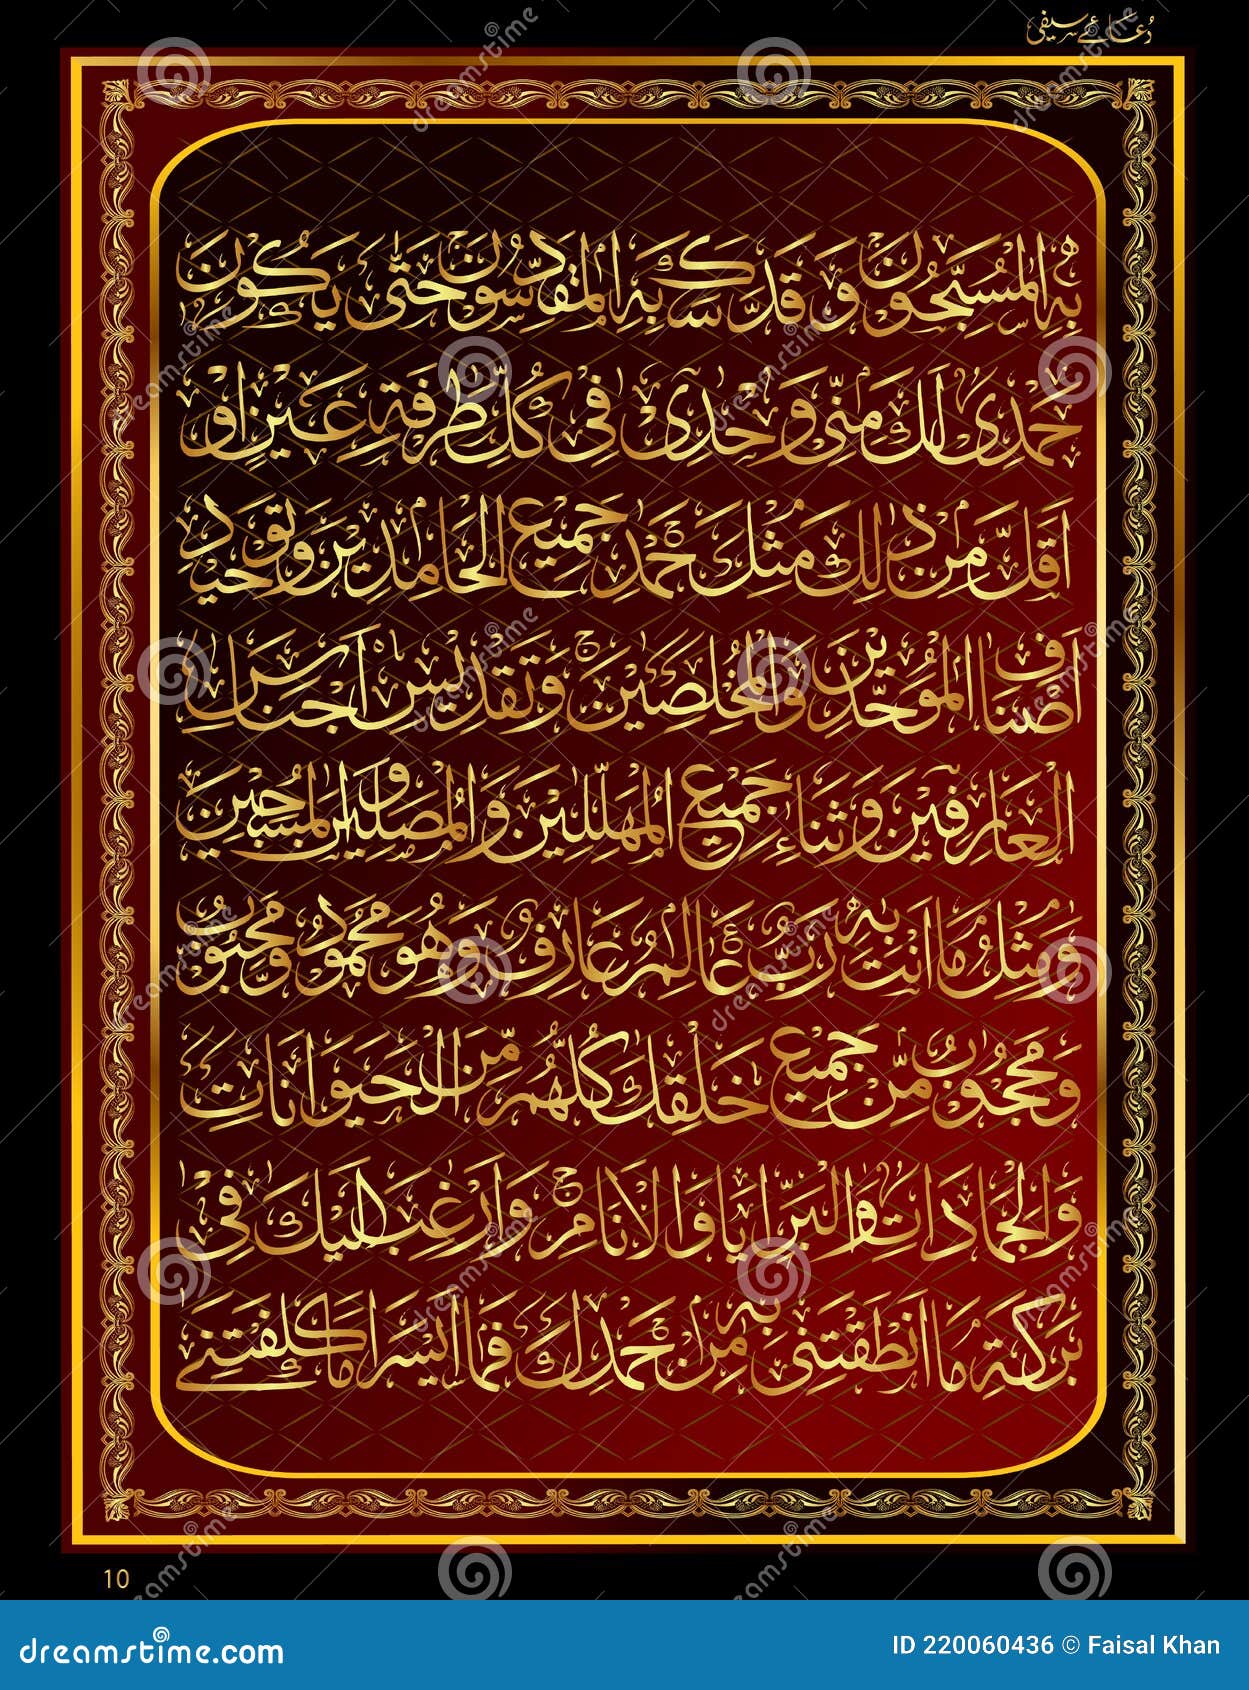 دُعائے سیفی
بِهِ الْمُسَبِّحُوْنَ وَ قَدَّسَكَ بِهِ الْمُقَدِّسُوْنَ حَتّٰى يَكُوْنَ
حَمْدِىْ لَكَ مِنِّىْ وَحْدِىْ فِىْ كُلِّ طَرْفَةِ عَيْنٍ اَوْ
اَقَلَّ مِنْ ذٰلِكَ مِثْلَ حَمْدِ جَمِيْعِ الْحَامِدِيْنَ وَتَوْحِيْدِ
اَصْنَافِ الْمُوَحِّدِيْنَ وَالْمُخْلِصِيْنَ وَتَقْدِيْسِ اَجْنَاسِ
الْعَارِفِيْنَ وَثَنَاءِ جَمِيْعِ الْمُهَلِّلِيْنَ وَالْمُصَلِّيْنَ وَالْمُسَبِّحِيْنَ
وَمِثْلُ مَا اَنْتَ بِهِ رَبُّ عَالِمٌ عَارِفٌ وَهُوَ مَحْمُوْدٌ وَمَحْبُوْبٌ
وَمَحْجُوْبٌ مِّنْ جَمِيْعِ خَلْقِكَ كُلِّهِمْ مِّنَ الْحَيَوَانَاتِ
وَالْجَمَادَاتِ وَالْبَرَايَا وَالْاَنَامِ وَاَرْغَبُ اِلَيْكَ فِىْ
بَرَكَةِ مَا اَنْطَقْتَنِىْ بِهِ مِنْ حَمْدِكَ فَمَا اَيْسَرَ مَا كَلَّفْتَنِىْ
10
dreamstime.com
ID 220060436 © Faisal Khan